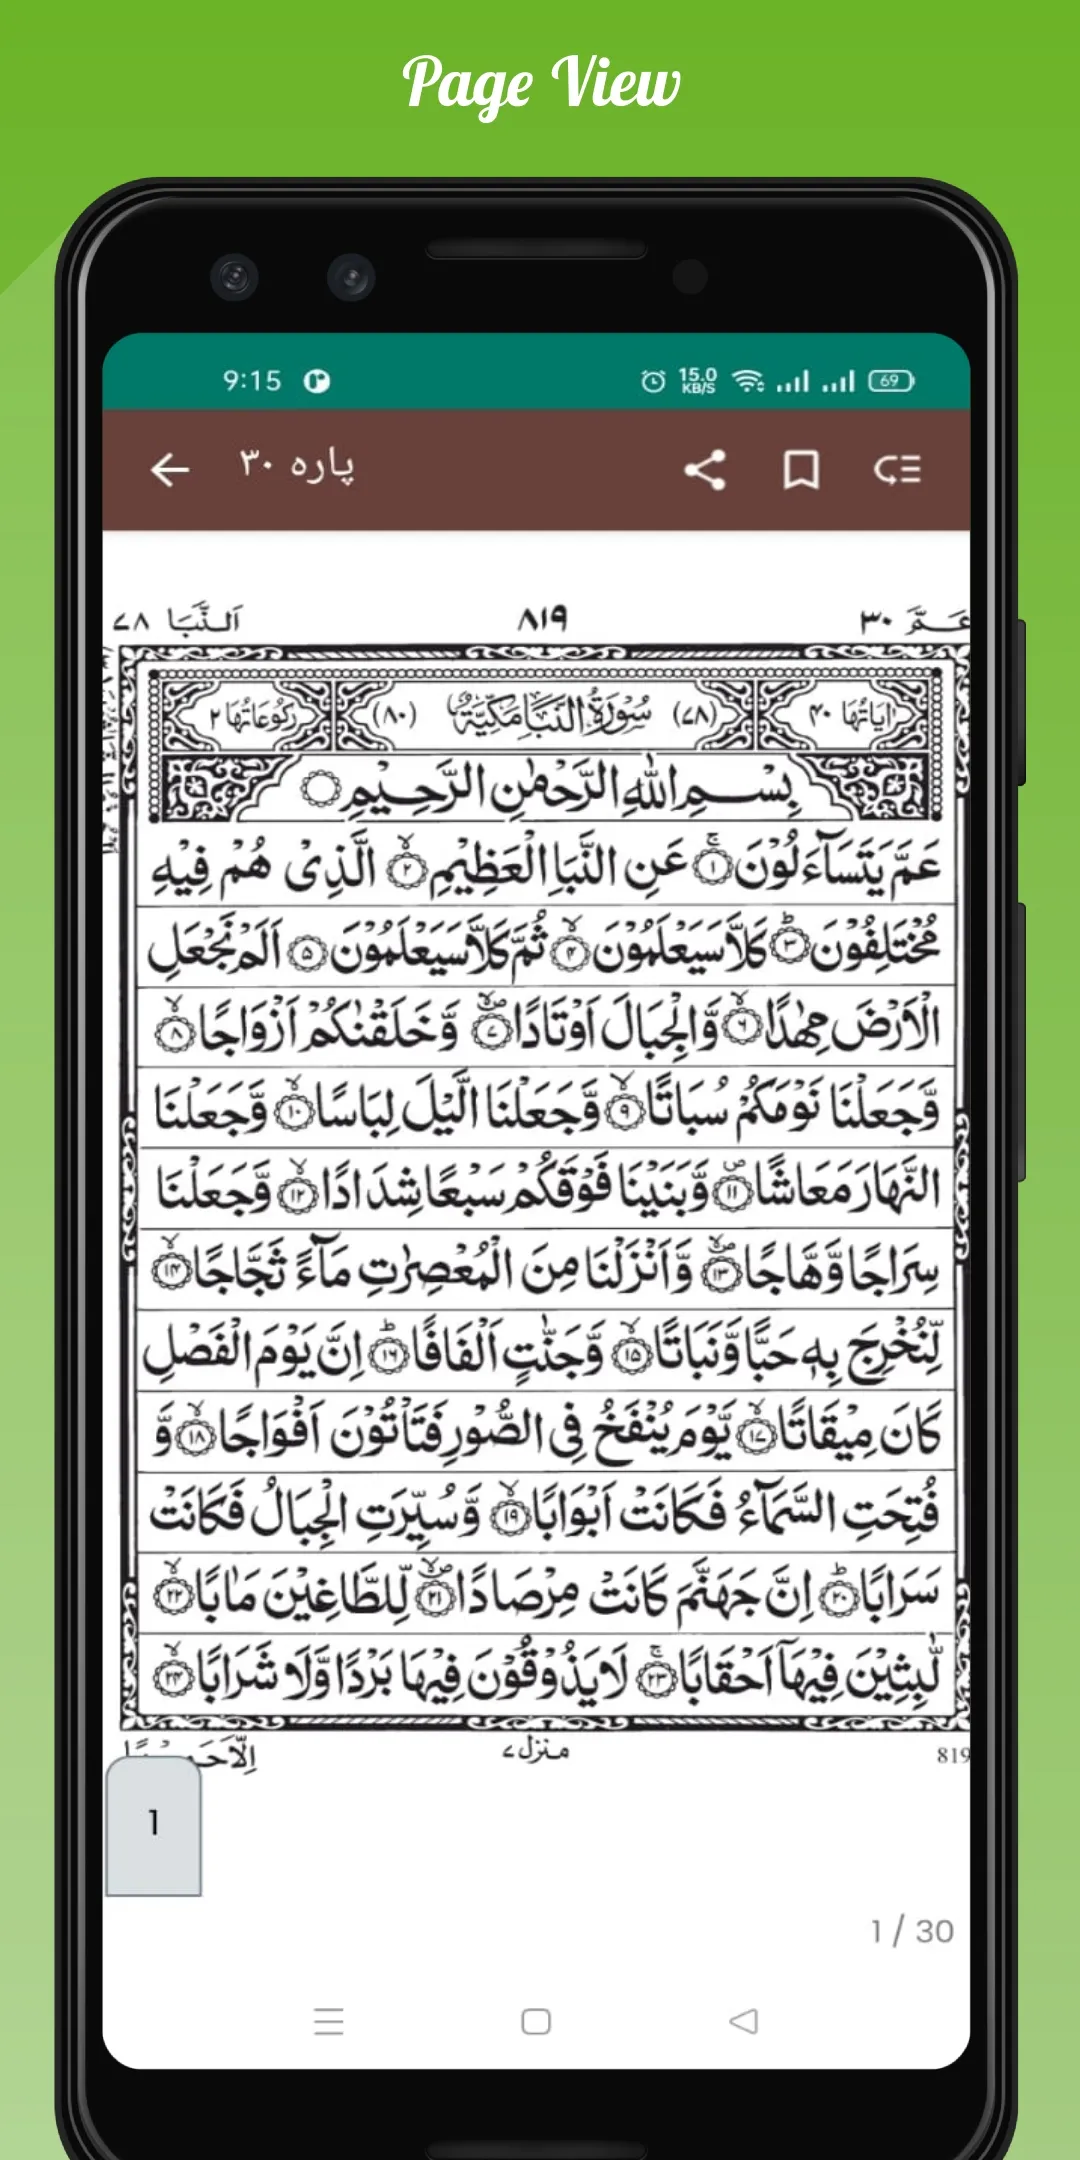 Page View
9:15 15.0 KB/S 69
پارہ ۳۰
عَـمَّ ۳۰ ۸۱۹ اَلنَّبَا ۷۸
اٰیَاتُهَا ۴۰ (۷۸) سُوْرَةُ النَّبَاِ مَكِّيَّةٌ (۸۰) رُكُوْعَاتُهَا ۲
بِسْمِ اللّٰهِ الرَّحْمٰنِ الرَّحِيْمِ
عَمَّ يَتَسَآءَلُوْنَ ۱ عَنِ النَّبَاِ الْعَظِيْمِ ۲ الَّذِىْ هُمْ فِيْهِ
مُخْتَلِفُوْنَ ۳ كَلَّا سَيَعْلَمُوْنَ ۴ ثُمَّ كَلَّا سَيَعْلَمُوْنَ ۵ اَلَمْ نَجْعَلِ
الْاَرْضَ مِهٰدًا ۶ وَّالْجِبَالَ اَوْتَادًا ۷ وَّخَلَقْنٰكُمْ اَزْوَاجًا ۸
وَّجَعَلْنَا نَوْمَكُمْ سُبَاتًا ۹ وَّجَعَلْنَا الَّيْلَ لِبَاسًا ۱۰ وَّجَعَلْنَا
النَّهَارَ مَعَاشًا ۱۱ وَّبَنَيْنَا فَوْقَكُمْ سَبْعًا شِدَادًا ۱۲ وَّجَعَلْنَا
سِرَاجًا وَّهَّاجًا ۱۳ وَّاَنْزَلْنَا مِنَ الْمُعْصِرٰتِ مَآءً ثَجَّاجًا ۱۴
لِّنُخْرِجَ بِهٖ حَبًّا وَّنَبَاتًا ۱۵ وَّجَنّٰتٍ اَلْفَافًا ۱۶ اِنَّ يَوْمَ الْفَصْلِ
كَانَ مِيْقَاتًا ۱۷ يَّوْمَ يُنْفَخُ فِى الصُّوْرِ فَتَاْتُوْنَ اَفْوَاجًا ۱۸ وَّ
فُتِحَتِ السَّمَآءُ فَكَانَتْ اَبْوَابًا ۱۹ وَّسُيِّرَتِ الْجِبَالُ فَكَانَتْ
سَرَابًا ۲۰ اِنَّ جَهَنَّمَ كَانَتْ مِرْصَادًا ۲۱ لِّلطَّاغِيْنَ مَاٰبًا ۲۲
لّٰبِثِيْنَ فِيْهَآ اَحْقَابًا ۲۳ لَا يَذُوْقُوْنَ فِيْهَا بَرْدًا وَّلَا شَرَابًا ۲۴
819 منزل ۷ اِلَّا
1
1 / 30